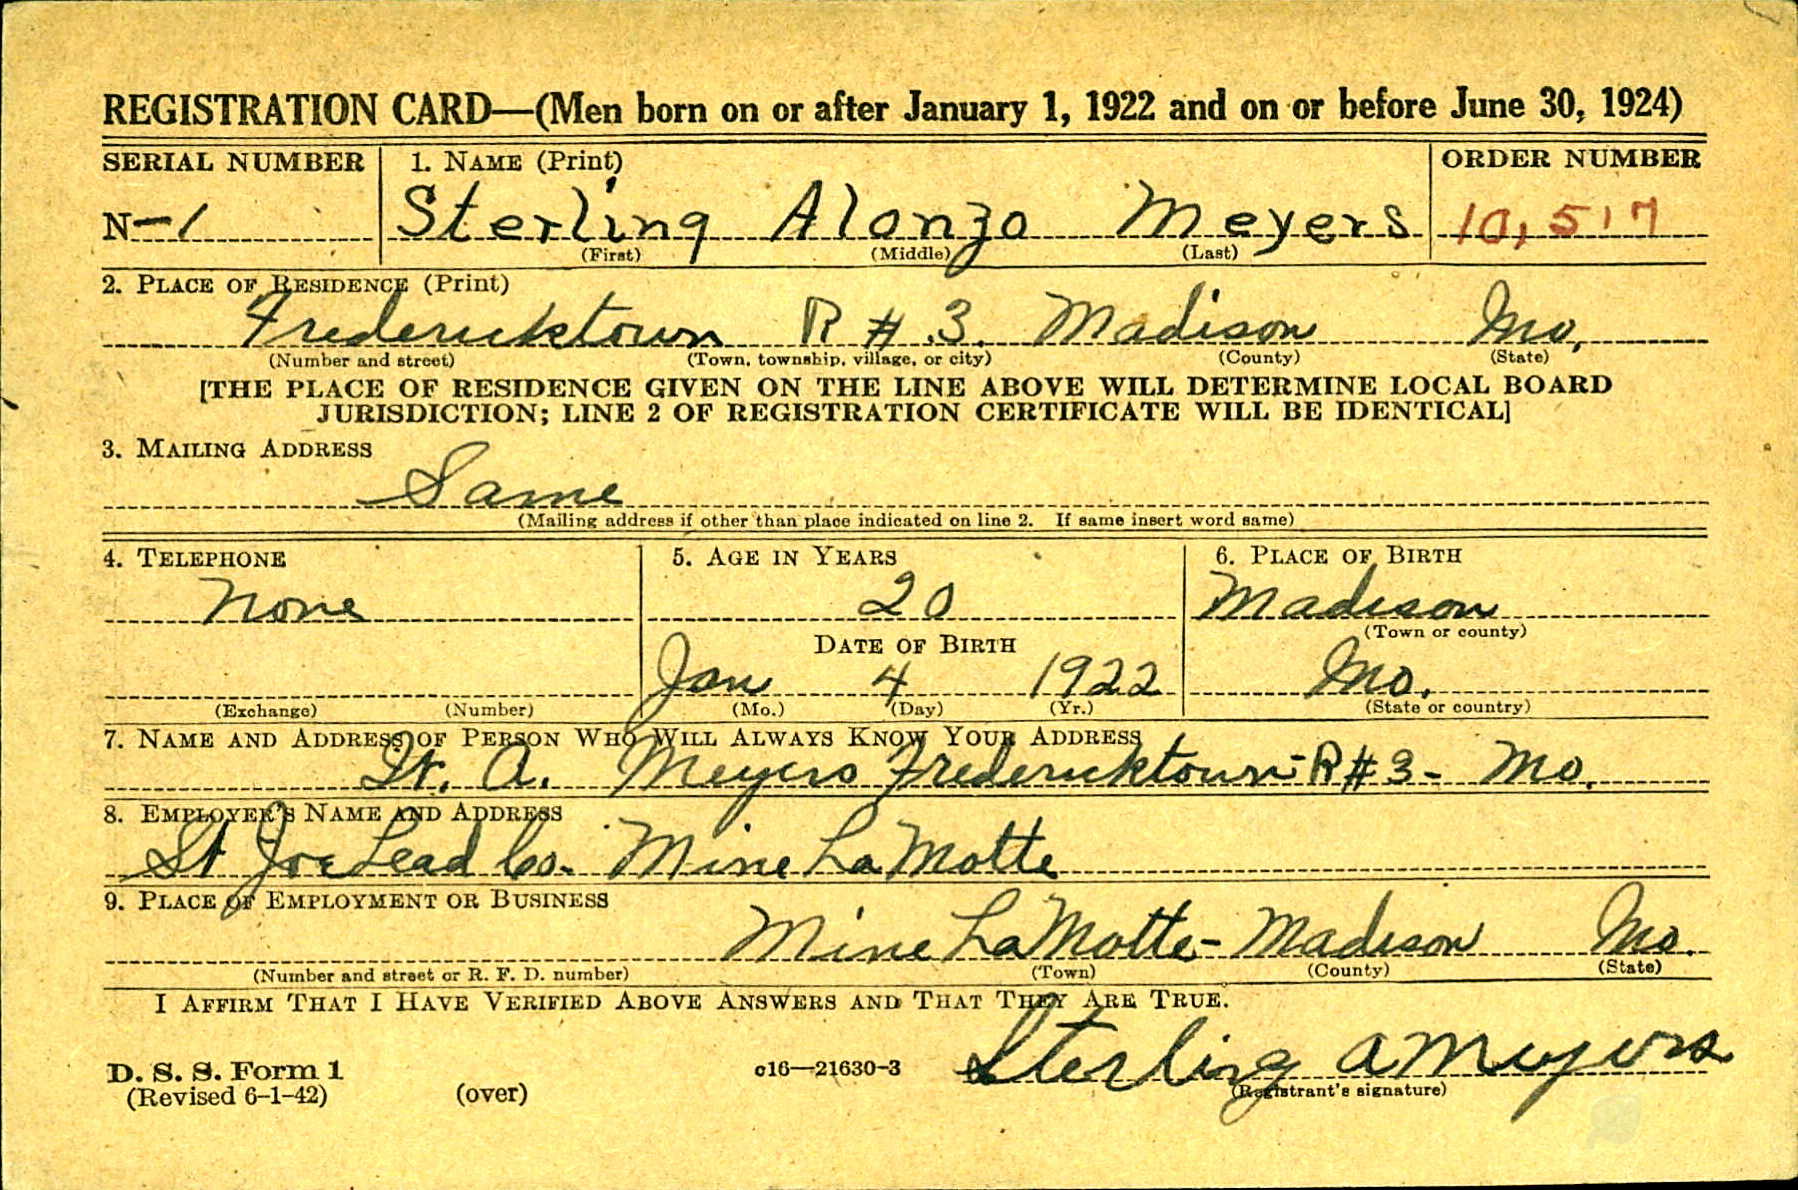 REGISTRATION CARD—(Men born on or after January 1, 1922 and on or before June 30, 1924)
SERIAL NUMBER 1. NAME (Print) ORDER NUMBER
N-1 Sterling Alonzo Meyers 10,517
(First) (Middle) (Last)
2. PLACE OF RESIDENCE (Print)
Fredericktown R # 3. Madison Mo.
(Number and street) (Town, township, village, or city) (County) (State)
[THE PLACE OF RESIDENCE GIVEN ON THE LINE ABOVE WILL DETERMINE LOCAL BOARD
JURISDICTION; LINE 2 OF REGISTRATION CERTIFICATE WILL BE IDENTICAL]
3. MAILING ADDRESS
Same
(Mailing address if other than place indicated on line 2. If same insert word same)
4. TELEPHONE 5. AGE IN YEARS 6. PLACE OF BIRTH
None 20 Madison
(Town or county)
DATE OF BIRTH
Jan 4 1922 Mo.
(Exchange) (Number) (Mo.) (Day) (Yr.) (State or country)
7. NAME AND ADDRESS OF PERSON WHO WILL ALWAYS KNOW YOUR ADDRESS
A. Meyers Fredericktown-R#3- Mo.
8. EMPLOYER'S NAME AND ADDRESS
St Joe Lead Co. Mine La Motte
9. PLACE OF EMPLOYMENT OR BUSINESS
Mine La Motte- Madison Mo.
(Number and street or R. F. D. number) (Town) (County) (State)
I AFFIRM THAT I HAVE VERIFIED ABOVE ANSWERS AND THAT THEY ARE TRUE.
Sterling A Meyers
D. S. S. Form 1 c16—21630-3 (Registrant's signature)
(Revised 6-1-42) (over)